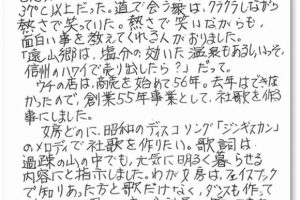 37℃以上だった。道で会う衆は、クラクラしながら
熱さで笑っていた。熱さで笑いながらも、
面白い事を教えてくれる人がおりました。
「遠山郷は、塩分の効いた温泉もあるし、いっそ
信州のハワイで売り出したら?」だって。
ウチの店は、商売を始めて56年。去年はできな
かったので、創業55年事業として、社歌を作る
事にしました。
文房どのに、昭和のディスコソング「ジンギスカン」
のメロディで社歌を作りたい。歌詞は
過疎の山の中でも、元気に明るく暮らせる
内容にと指示しました。わが文房は、フェイスブック
で知りあった方と歌だけでなく、ダンスも作って